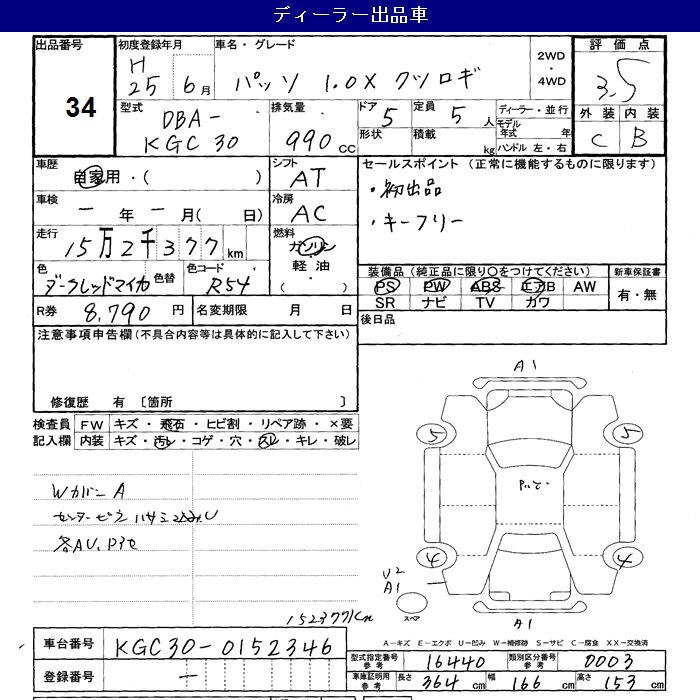 ディーラー出品車
出品番号 34
初度登録年月 H25 6月
車名・グレード パッソ 1.0X クツロギ
2WD ・ 4WD
評価点 3.5
型式 DBA-KGC30
排気量 990 cc
ドア 5 定員 5人
形状 積載 kg
ディーラー・並行
モデル年式 年
ハンドル 左・右
外装 内装
C B
車歴 自家用・( )
シフト AT
セールスポイント (正常に機能するものに限ります)
・初出品
・キーフリー
車検 ー年ー月( 日)
冷房 AC
走行 15万2千377km
燃料 ガソリン 軽油 ・ ( )
色 ダークレッドマイカ 色替 色コード R54
装備品(純正品に限り○をつけてください)
PS PW ABS エアB AW
SR ナビ TV カワ
新車保証書 有・無
R券 8,790円 名変期限 月 日
後日品
注意事項申告欄(不具合内容等は具体的に記入して下さい)
修復歴 有 〔箇所 〕
検査員記入欄
FW キズ・飛石・ヒビ割・リペア跡・×要
内装 キズ・汚レ・コゲ・穴・スレ・キレ・破レ
WカバーA
センターピラーハサミ込みU
各AU、
A1
5 5
4 4
U2
A1
スペア
A1
152377Km
A-キズ E-エクボ U-凹み W-補修跡 S-サビ C-腐食 XX-交換済
車台番号 KGC30-0152346
登録番号 ー
型式指定番号 参考 16440 類別区分番号 参考 0003
車庫証明用 参考 長さ 364cm 幅 166cm 高さ 153cm